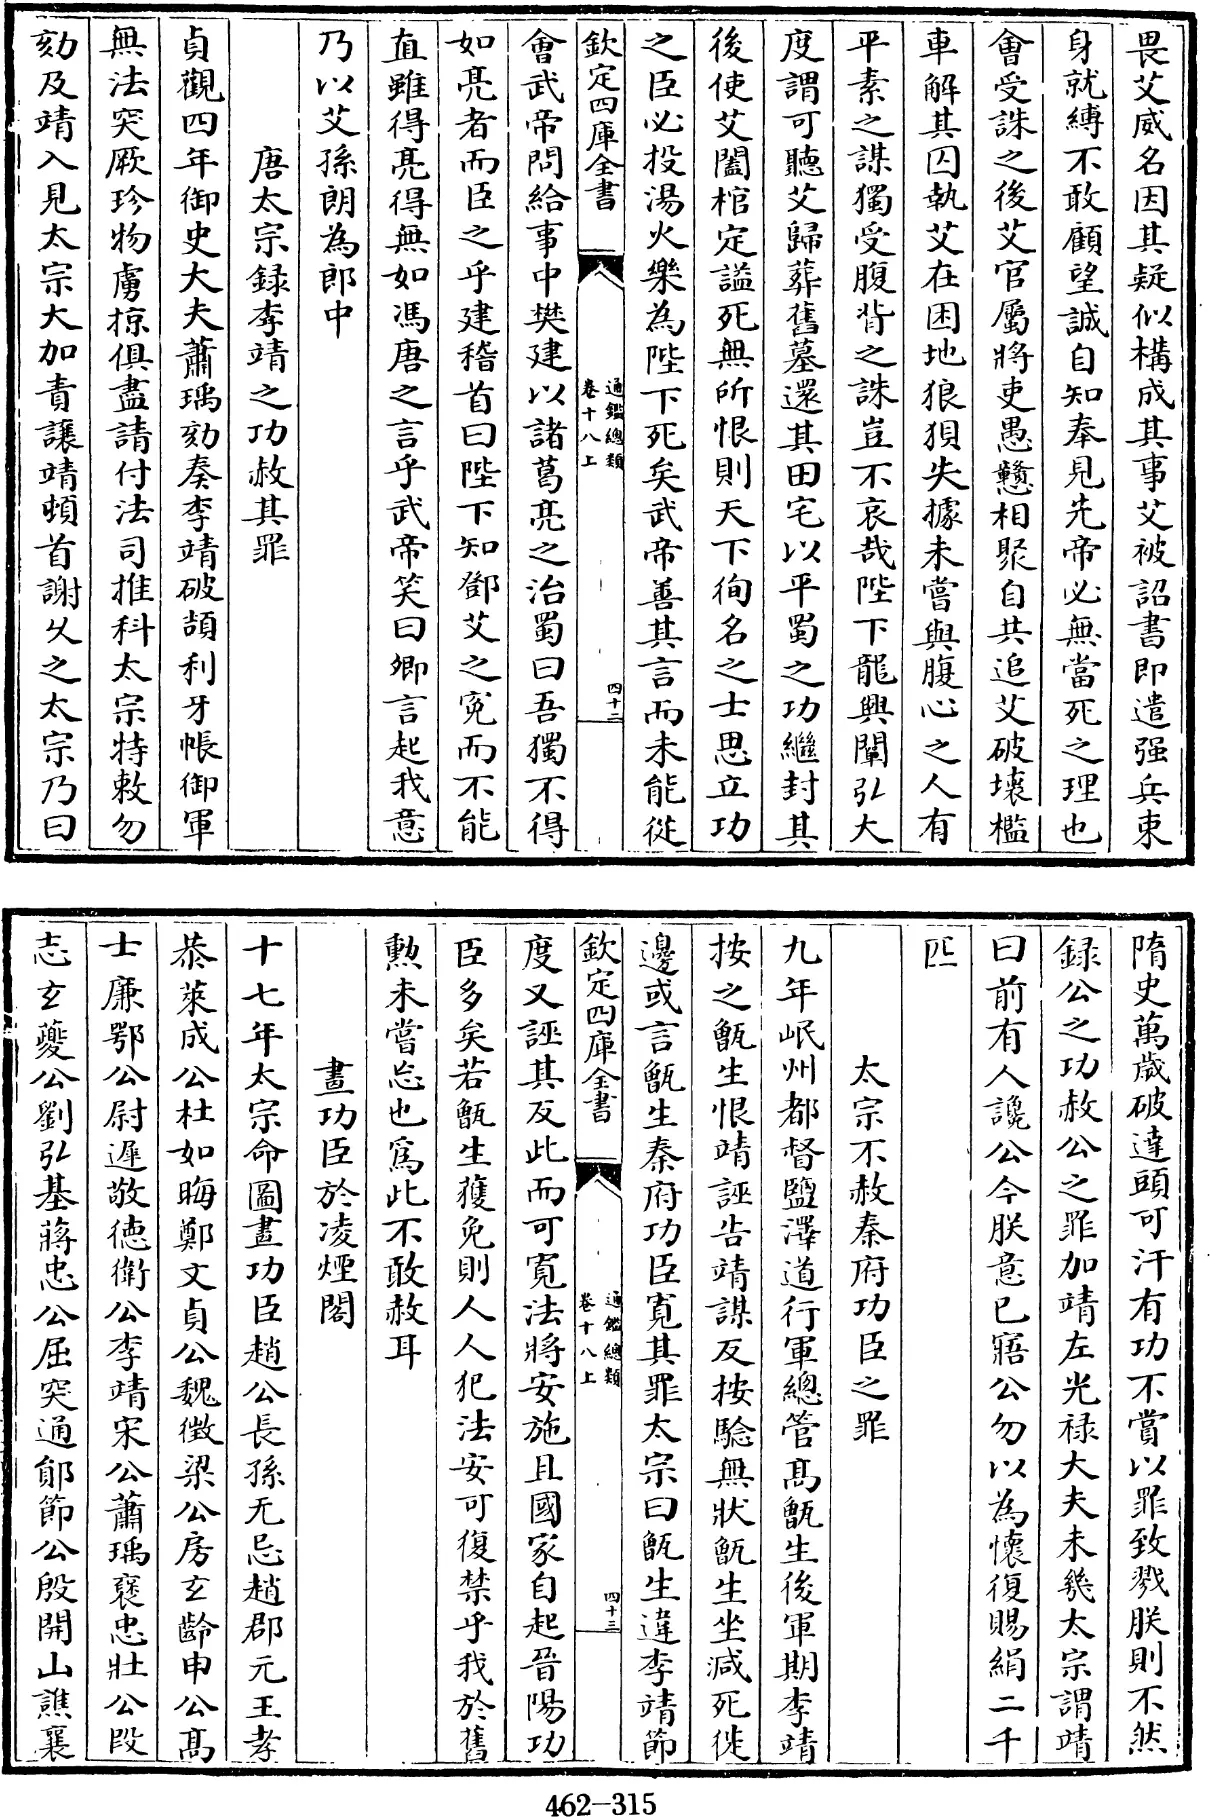 畏艾威名因其疑似構成其事艾被詔書即遣强兵束
身就縛不敢顧望誠自知奉見先帝必無當死之理也
會受誅之後艾官屬將吏愚戇相聚自共追艾破壞檻
車解其囚執艾在困地狼狽失據未嘗與腹心之人有
平素之謀獨受腹背之誅豈不哀哉陛下龍興闡弘大
度謂可聽艾歸葬舊墓還其田宅以平蜀之功繼封其
後使艾闔棺定謚死無所恨則天下徇名之士思立功
之臣必投湯火樂為陛下死矣武帝善其言而未能從
欽定四庫全書
通鑑總類
卷十八上
四十二
會武帝問給事中樊建以諸葛亮之治蜀曰吾獨不得
如亮者而臣之乎建稽首曰陛下知鄧艾之寃而不能
直雖得亮得無如馮唐之言乎武帝笑曰卿言起我意
乃以艾孫朗為郎中
唐太宗録李靖之功赦其罪
貞觀四年御史大夫蕭瑀劾奏李靖破頡利牙帳御軍
無法突厥珍物虜掠俱盡請付法司推科太宗特敕勿
劾及靖入見太宗大加責讓靖頓首謝乆之太宗乃曰
隋史萬歲破達頭可汗有功不賞以罪致戮朕則不然
録公之功赦公之罪加靖左光禄大夫未幾太宗謂靖
曰前有人讒公今朕意已寤公勿以為懷復賜絹二千
匹
太宗不赦秦府功臣之罪
九年岷州都督鹽澤道行軍總管髙甑生後軍期李靖
按之甑生恨靖誣告靖謀反按驗無狀甑生坐減死徙
邊或言甑生秦府功臣寛其罪太宗曰甑生違李靖節
欽定四庫全書
通鑑總類
卷十八上
四十三
度又誣其反此而可寛法將安施且國家自起晉陽功
臣多矣若甑生獲免則人人犯法安可復禁乎我於舊
勲未嘗忘也為此不敢赦耳
畫功臣於凌煙閣
十七年太宗命圖畫功臣趙公長孫无忌趙郡元王孝
恭萊成公杜如晦鄭文貞公魏徵梁公房玄齡申公髙
士廉鄂公尉遲敬徳衛公李靖宋公蕭瑀褒忠壯公段
志玄夔公劉弘基蔣忠公屈突通鄖節公殷開山譙襄
462-315